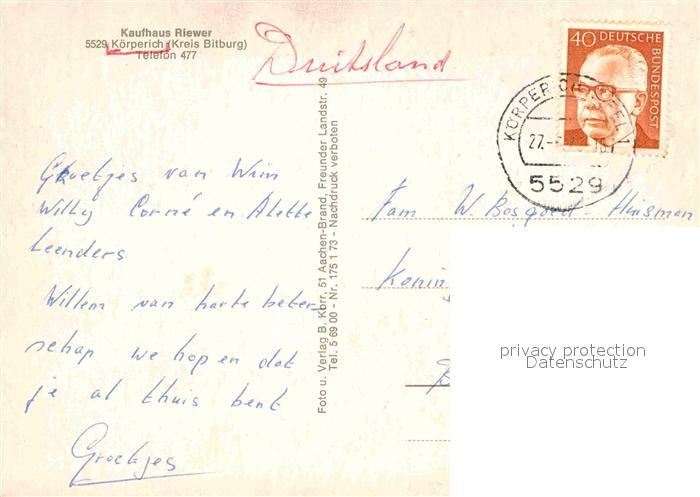 Kaufhaus Riewer
5529 Körperich (Kreis Bitburg)
Telefon 477
Druitsland
40 DEUTSCHE BUNDESPOST
KÖRPERICH EIFEL 1
27.
5529
Groetjes van Wim
Willy Corné en Alette
Leenders
Willem van harte beter-
schap we hopen dat
je al thuis bent
Groetjes
Foto u. Verlag B. Korr, 51 Aachen-Brand, Freunder Landstr. 49
Tel. 5 69 00 - Nr. 175 1 73 - Nachdruck verboten
Fam W. Bosgoed-Huisman
Konin
privacy protection
Datenschutz